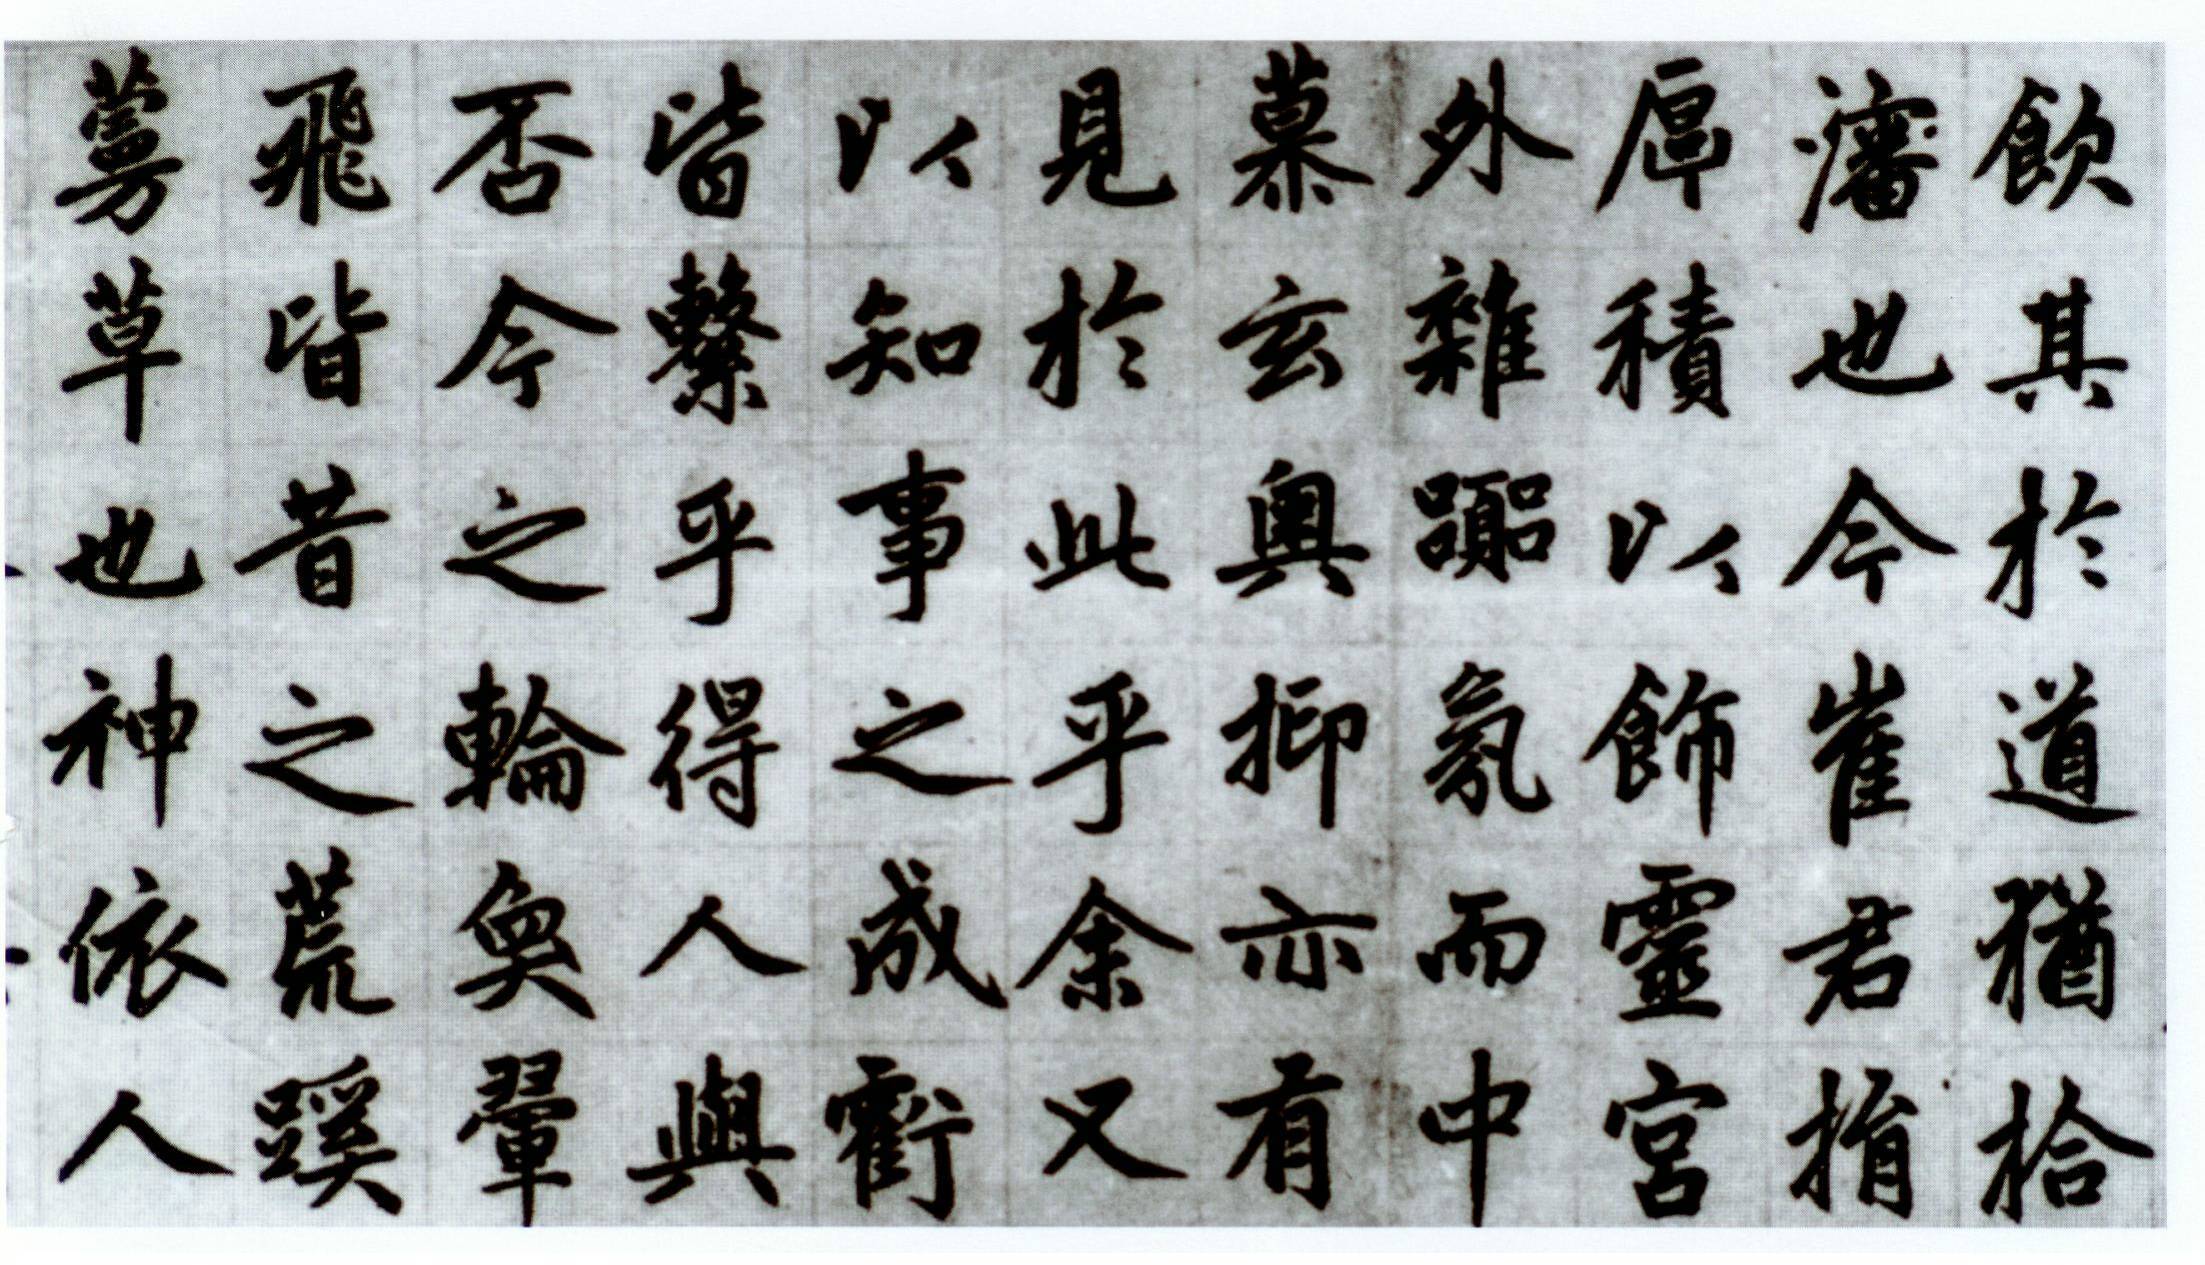 飲其於道猶拾
瀋也今崔君捐
厚積以飾靈宮
外雜囂氛而中
慕玄奧抑亦有
見於此乎余又
以知事之成虧
皆繫乎得人與
否今之輪奐翬
飛皆昔之荒蹊
蔓草也神依人